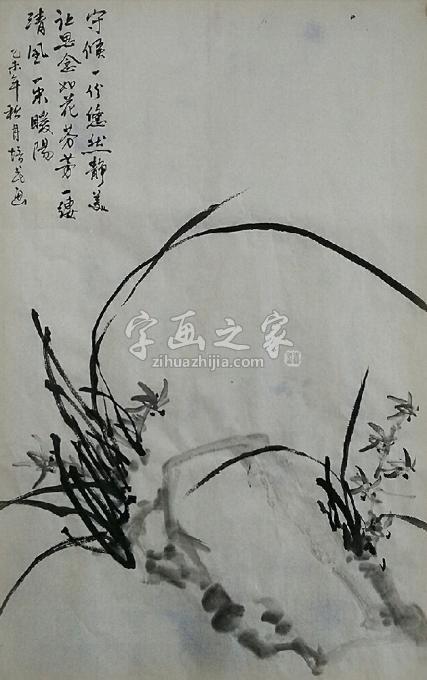 守候一份悠然静美
让思念如花芬芳一缕
清风一米暖阳
乙未年秋月培茂画
字画之家
zihuazhijia.com